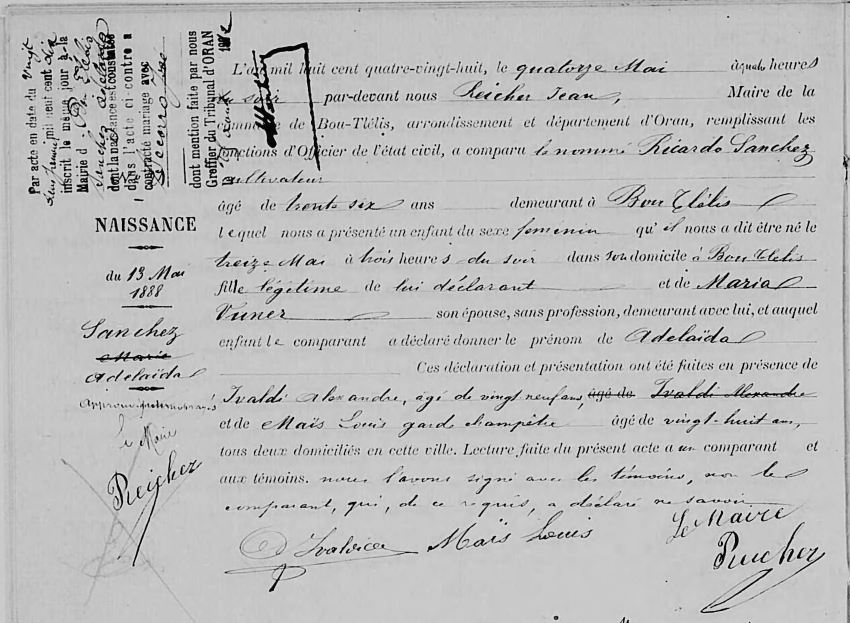 Par acte en date du vingt
mil neuf cent dix
inscrit le même jour à la
Mairie d Bou Tlélis
Sanchez Adelaïda
dont la naissance est constatée
dans l'acte ci contre a
contracté mariage avec
dont mention faite par nous
Greffier du Tribunal d'ORAN
NAISSANCE
du 13 Mai
1888
Sanchez
Marie
Adelaida
le Maire
Reicher
L'an mil huit cent quatre-vingt-huit, le quatorze Mai à quatre heures
du soir par-devant nous Reicher Jean, Maire de la
commune de Bou-Tlélis, arrondissement et département d'Oran, remplissant les
fonctions d'Officier de l'état civil, a comparu le nommé Ricardo Sanchez
cultivateur
âgé de trente six ans demeurant à Bou Tlélis
lequel nous a présenté un enfant du sexe féminin qu'il nous a dit être né le
treize Mai à trois heures du soir dans son domicile à Bou Tlelis
fille légitime de lui déclarant et de Maria
son épouse, sans profession, demeurant avec lui, et auquel
enfant le comparant a déclaré donner le prénom de Adelaïda
Ces déclaration et présentation ont été faites en présence de
Ivaldi Alexandre, âgé de vingt neuf ans, âgé de Ivaldi Alexandre
et de Maïs Louis garde champêtre âgé de vingt-huit ans,
tous deux domiciliés en cette ville. Lecture faite du présent acte au comparant et
aux témoins. nous l'avons signé avec les témoins, non le
comparant, qui, de ce requis, a déclaré ne savoir
Maïs Louis
Le Maire
Reicher